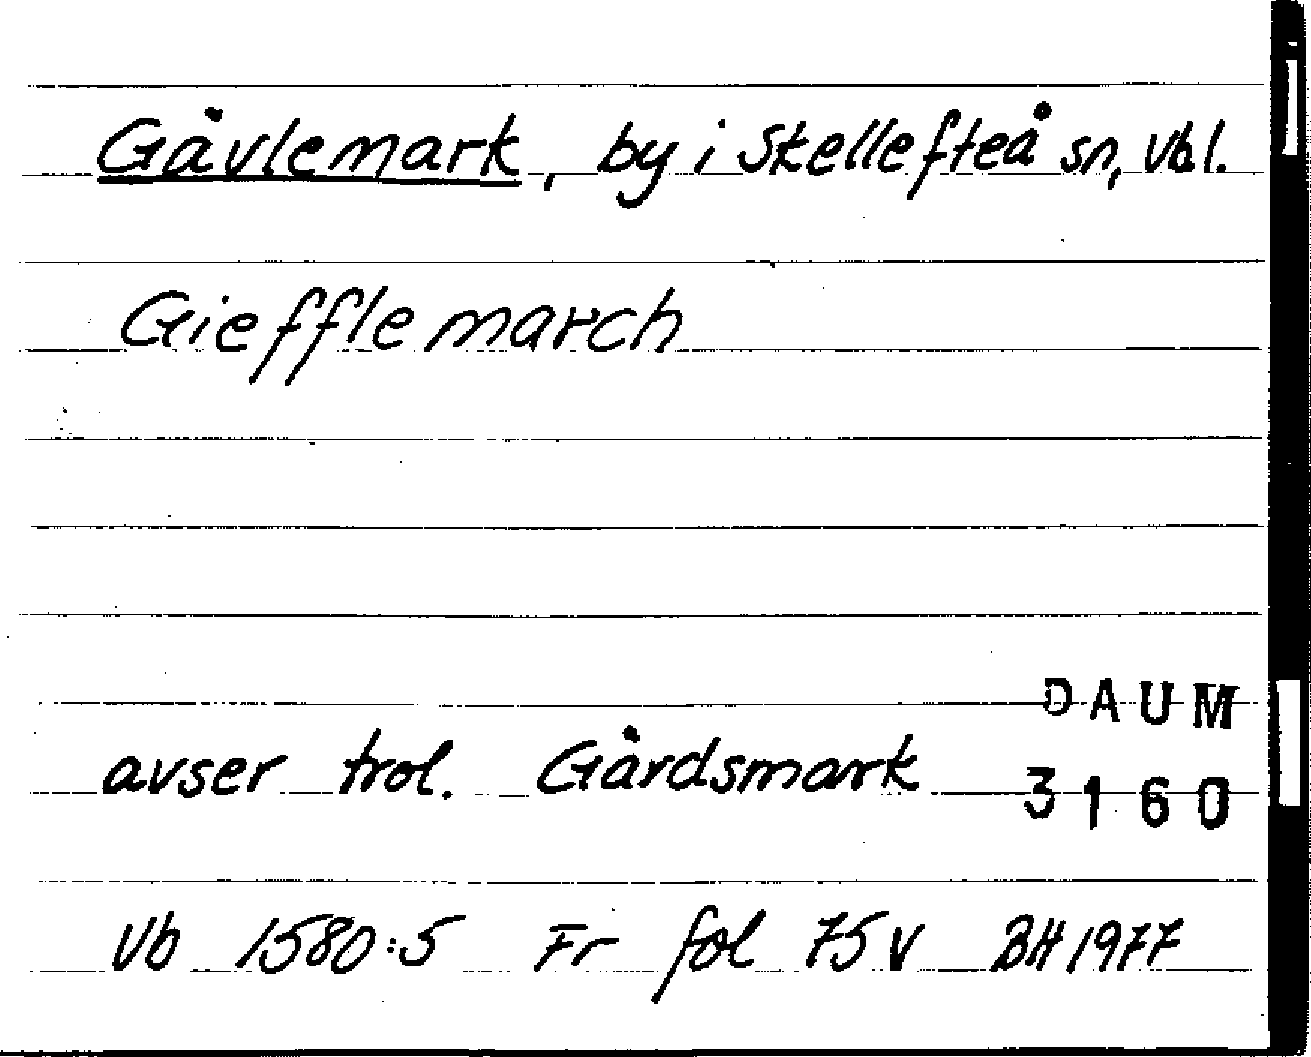 Gävlemark, by i Skellefteå sn, Vbl.
Giefflemarch
DAUM
avser trol. Gärdsmark
3160
Vb 1580:5 Fr fol 75 v BH 1977